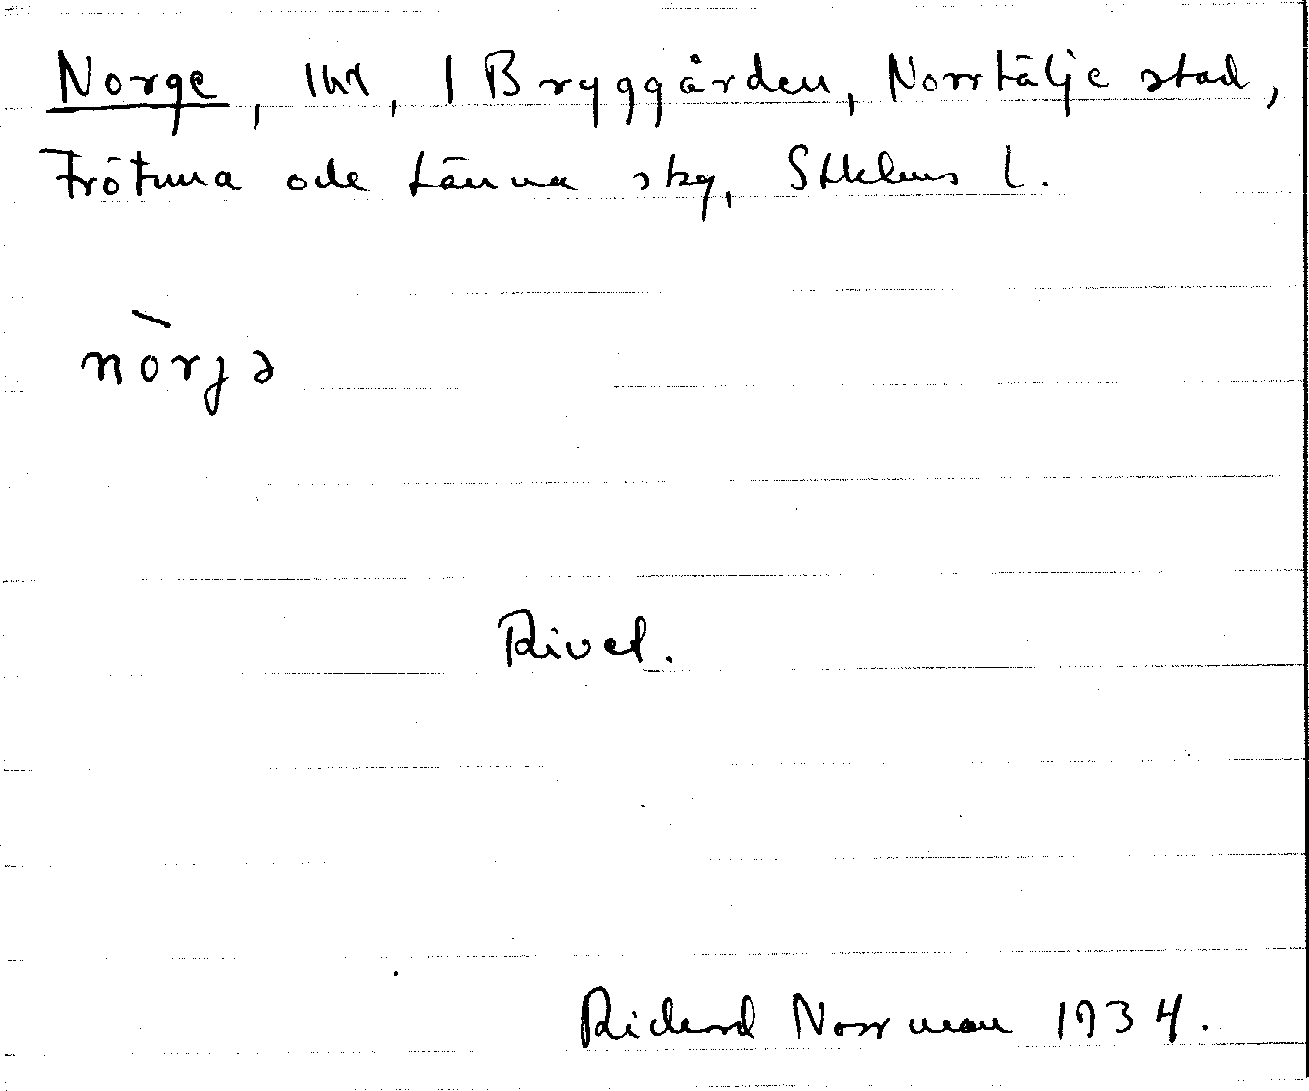 Norge, tkt, 1 Bryggården, Norrtälje stad,
Frötuna och Länna skg, Sthlms l.
nòrjə
Rivet.
Richard Norrman 1934.